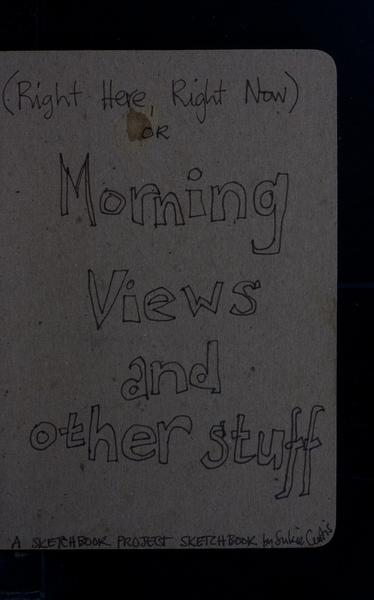 (Right Here, Right Now)
OR
Morning
Views
and
other stuff
A SKETCHBOOK PROJECT SKETCHBOOK by Sukie Curtis